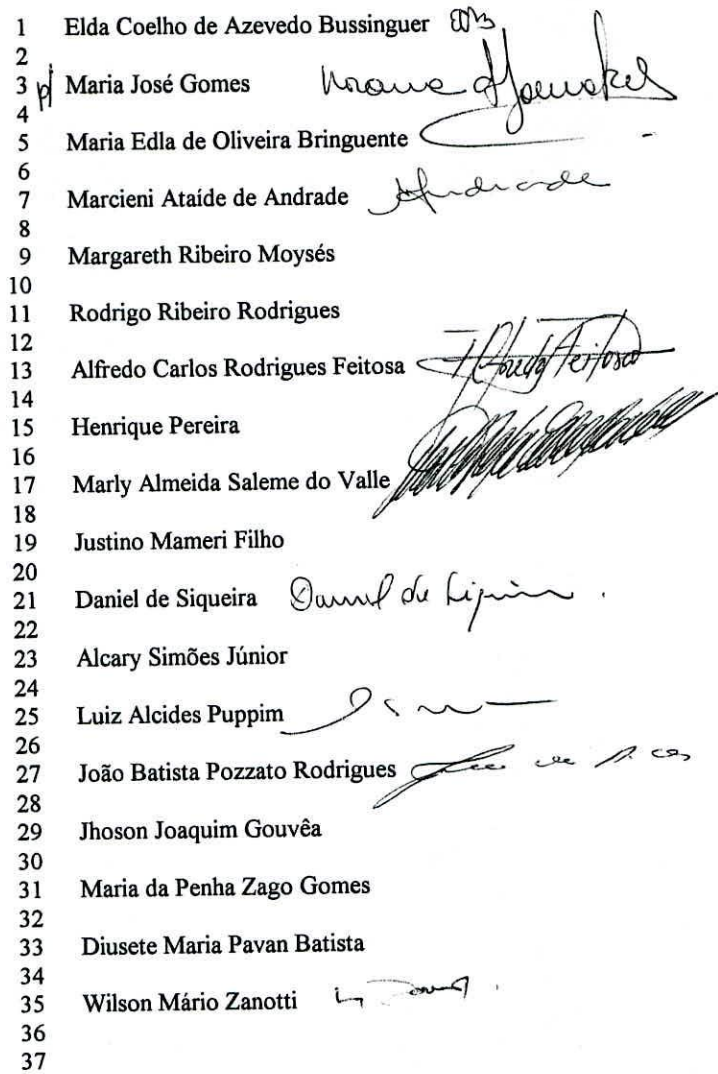 1 Elda Coelho de Azevedo Bussinguer
2
3 p/ Maria José Gomes
4
5 Maria Edla de Oliveira Bringuente
6
7 Marcieni Ataíde de Andrade Andrade
8
9 Margareth Ribeiro Moysés
10
11 Rodrigo Ribeiro Rodrigues
12
13 Alfredo Carlos Rodrigues Feitosa Feitosa
14
15 Henrique Pereira
16
17 Marly Almeida Saleme do Valle
18
19 Justino Mameri Filho
20
21 Daniel de Siqueira
22
23 Alcary Simões Júnior
24
25 Luiz Alcides Puppim
26
27 João Batista Pozzato Rodrigues
28
29 Jhoson Joaquim Gouvêa
30
31 Maria da Penha Zago Gomes
32
33 Diusete Maria Pavan Batista
34
35 Wilson Mário Zanotti
36
37